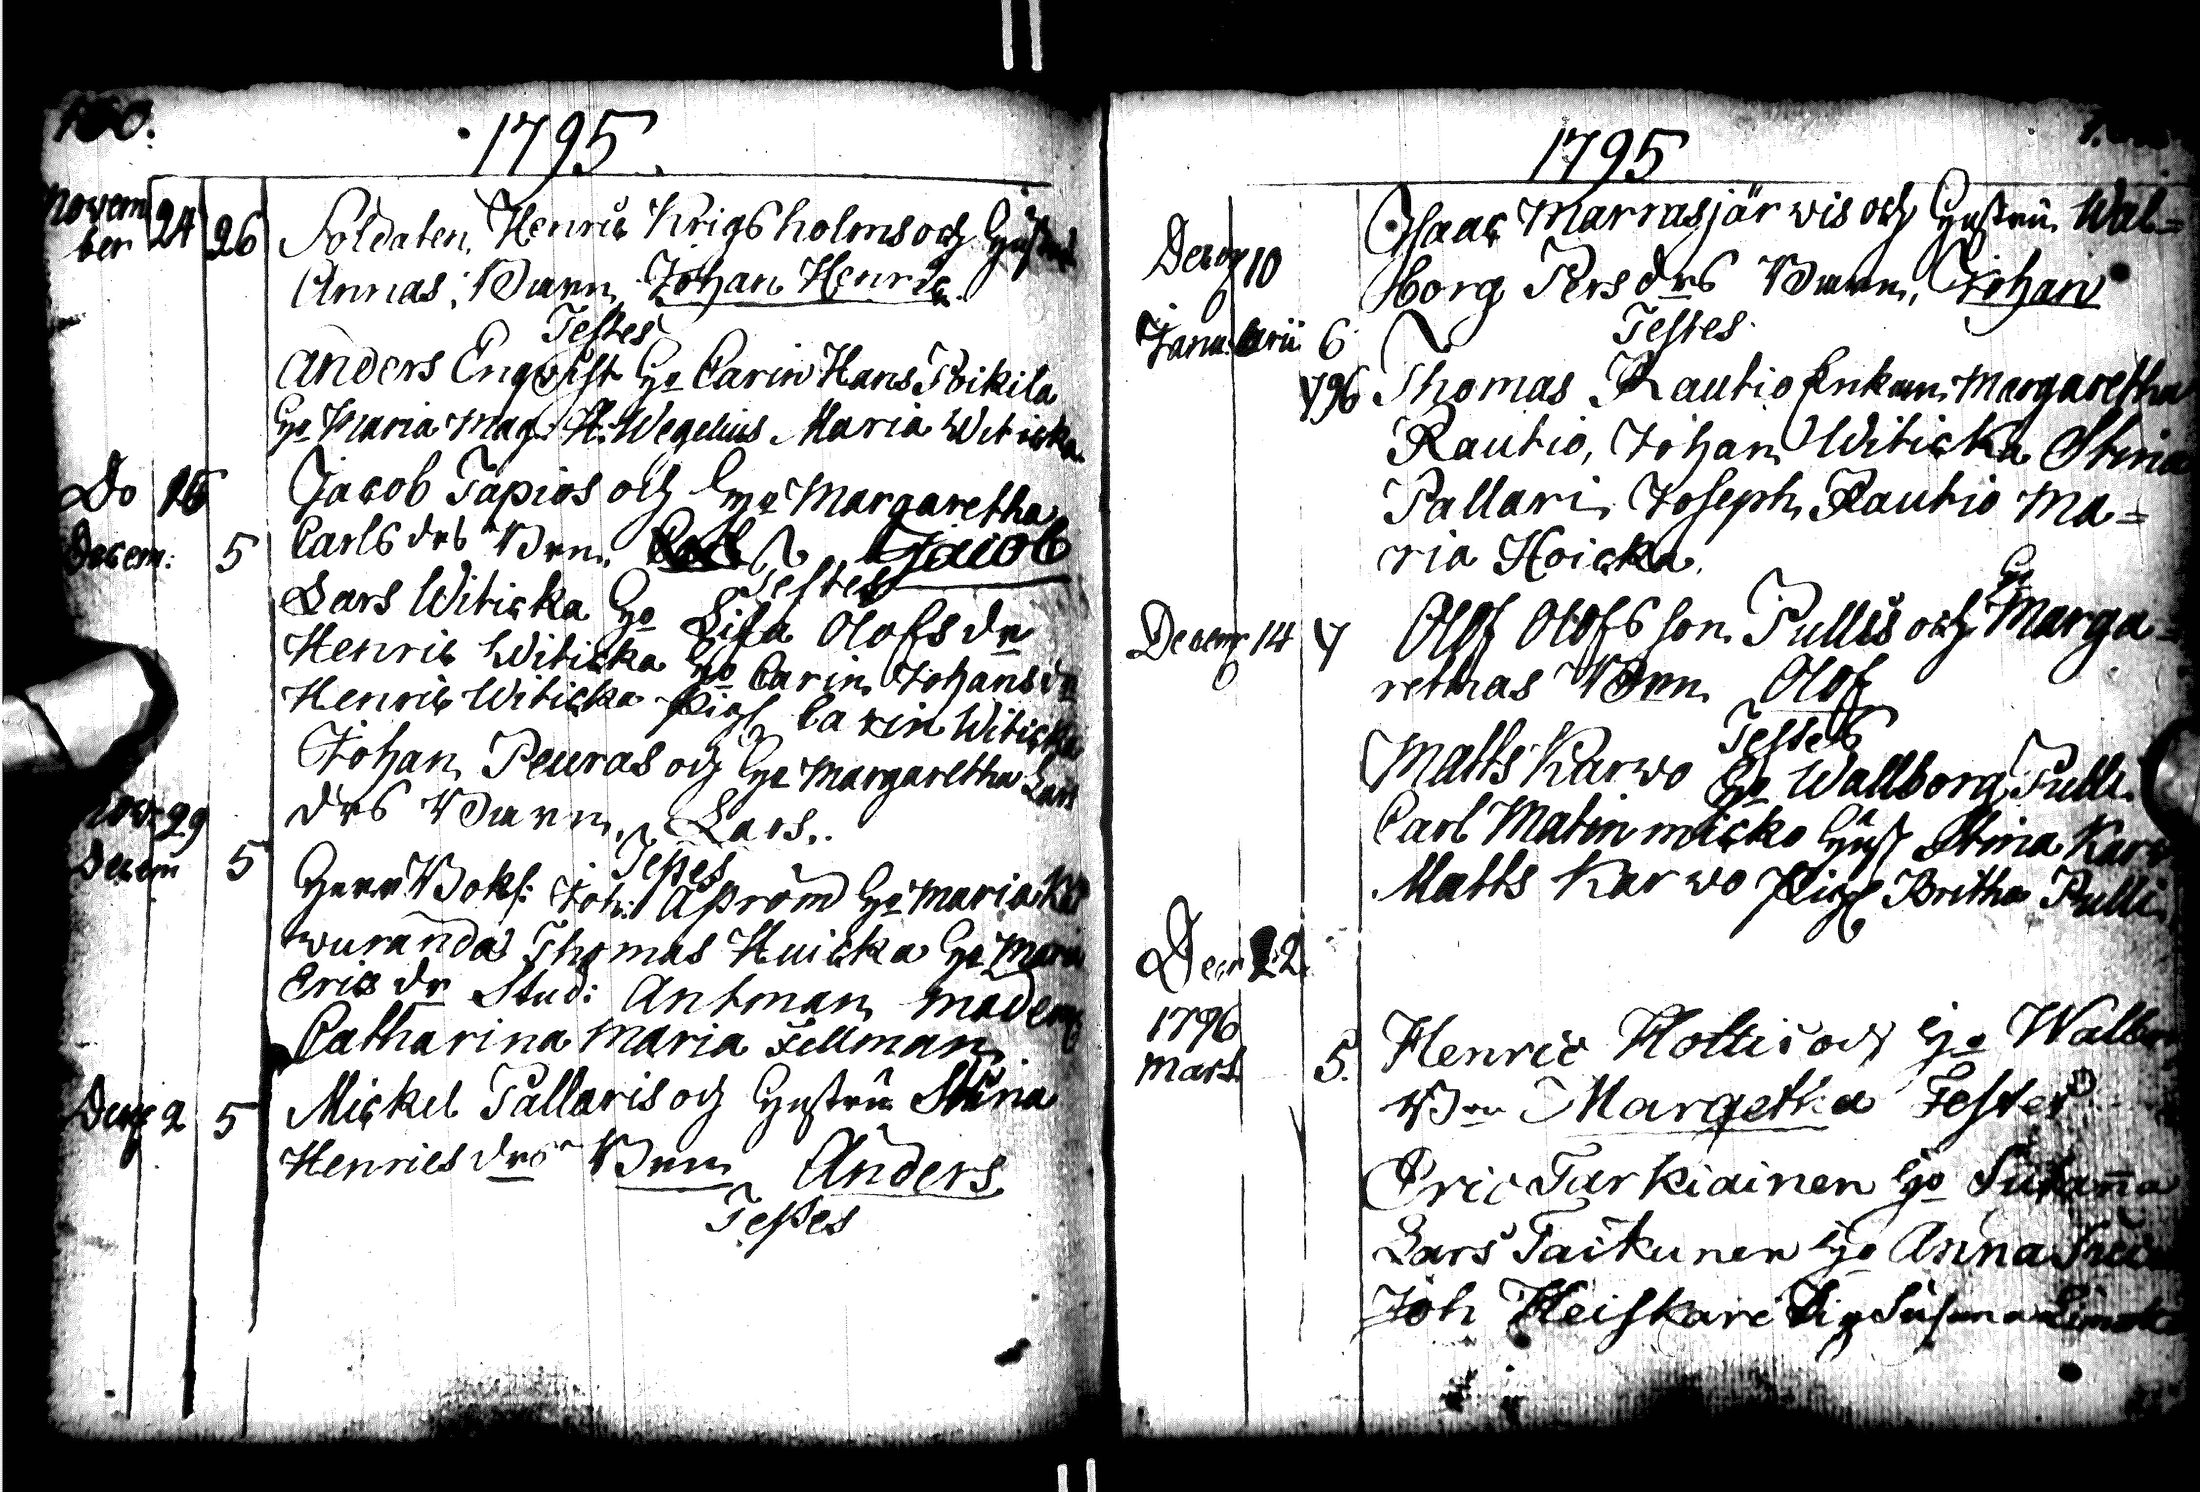 1795
Novem
ber 24 26 Soldaten Henric Krigsholms och Hustrus
Annas Barn Johan Henric
Testes
Anders Enqvist Ho Carin Hans Poikila
Ho Maria Mag. H. Wegelius Maria Witicka
Do 16 Jacob Tapios och Ho Margaretha
Decem: 5 Carls drs Brn Jacob
Testes
Lars Witicka Ho Lisa Olofs dr
Henric Witicka Ho Carin Johans dr
Henric Witicka Pig Carin Witicka
Johan Peuras och Ho Margaretha Lars
drs Barn Lars.
Nov. 29
Decem 5 Testes
Herr Bokh: Joh: Aström Ho Maria
wuranda Thomas Huicka Ho Maria
Erics dr Stud: Antman Madem
Catharina Maria Fellman
Dec 2 5 Mickel Pallaris och Hustru Stina
Henrics drs Brn Anders
Testes
1795
Dec 10 Isaac Marrasjärwis och Hustru Wal=
borg Pers drs Barn, Johan
Januarii 6 Testes
796 Thomas Rautio Enkan Margaretha
Rautio, Johan Witicka Stina
Pallari, Joseph Rautio Ma=
ria Hoicka.
Decem 14 7 Olof Olofs son Pullis och Ho Marga=
rethas Barn Olof
Testes
Matts Karwo Ho Wallborg Pulli
Carl Matin micko Hust Stina Karwo
Matts Karwo Pig Britha Pulli
Decr 22
1796
Mart. 5. Henric Hottis och Ho Walbor
Brn Margetha Testes
Eric Turkiainen Ho Susanna
Lars Taikunen Ho Anna
Joh Heiskari Pig Susanna